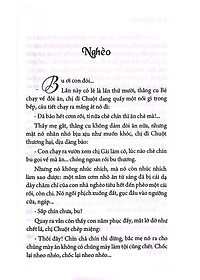 Nghèo
Bu ơi con đói...
Lần này có lẽ là lần thứ mười, thằng cu Bé
chạy về đòi ăn, chị Chuột đang quấy một nồi gì trong
bếp, cáu tiết chạy ra mắng át nó đi:
- Đã bảo hết cơm rồi, tí nữa chè chín thì ăn chè mà!
Thấy mẹ gắt, thằng cu không dám đòi ăn nữa, nhưng
mặt nó nhăn nhó bíu xịu như muốn khóc, chị đĩ Chuột
thương hại, dịu dàng bảo:
- Con chạy ra vườn xem chị Gái làm cỏ, lúc nào chè chín
bu gọi về mà ăn... chóng ngoan rồi bu thương.
Nhưng nó không nhúc nhích, mà có nhúc nhích cũng
làm sao được: một nắm cơm nhỏ ăn từ sáng đã bị cái dạ
dày chăm chỉ của con nhà nghèo tiêu hết đến phèo một cái
rồi, còn chi. Nó ngồi phịch xuống đất, gục đầu vào ngưỡng
cửa, ngáp...
- Sắp chín chưa, bu?
Quay ra vẫn còn thấy con nằm phục đấy, mắt lờ đờ như
chết lả, chị Chuột chép miệng:
- Thôi đây! Chín chả chín thì đừng, bắc mẹ nó ra cho
chúng mày ăn không có chúng mày làm tội chúng chết. Chốc
lại nheo nhéo, chốc lại nheo nhéo...